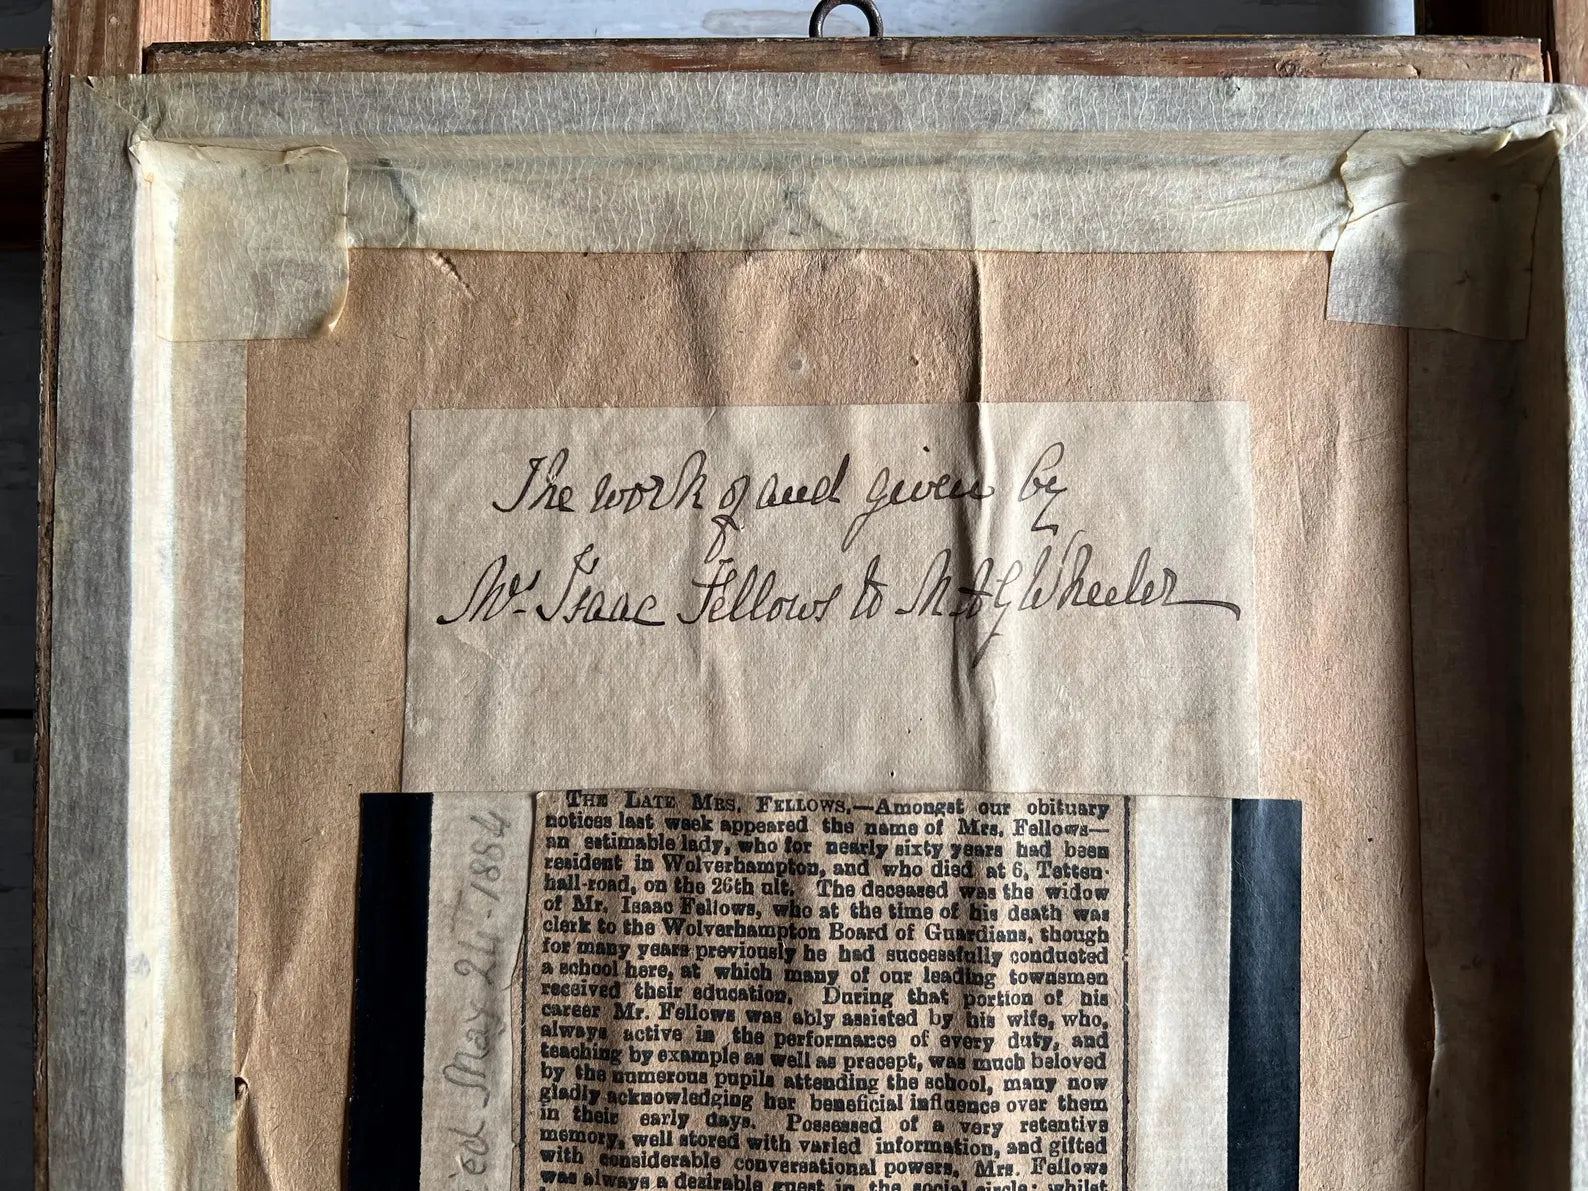 The work of and given by
Mr. Isaac Fellows to M A G Wheeler
THE LATE MRS. FELLOWS.—Amongst our obituary
notices last week appeared the name of Mrs. Fellows—
an estimable lady, who for nearly sixty years had been
resident in Wolverhampton, and who died at 6, Tetten-
hall-road, on the 26th ult. The deceased was the widow
of Mr. Isaac Fellows, who at the time of his death was
clerk to the Wolverhampton Board of Guardians, though
for many years previously he had successfully conducted
a school here, at which many of our leading townsmen
received their education. During that portion of his
career Mr. Fellows was ably assisted by his wife, who,
always active in the performance of every duty, and
teaching by example as well as precept, was much beloved
by the numerous pupils attending the school, many now
gladly acknowledging her beneficial influence over them
in their early days. Possessed of a very retentive
memory, well stored with varied information, and gifted
with considerable conversational powers, Mrs. Fellows
was always a desirable guest in the social circle; whilst
May 24th 1884